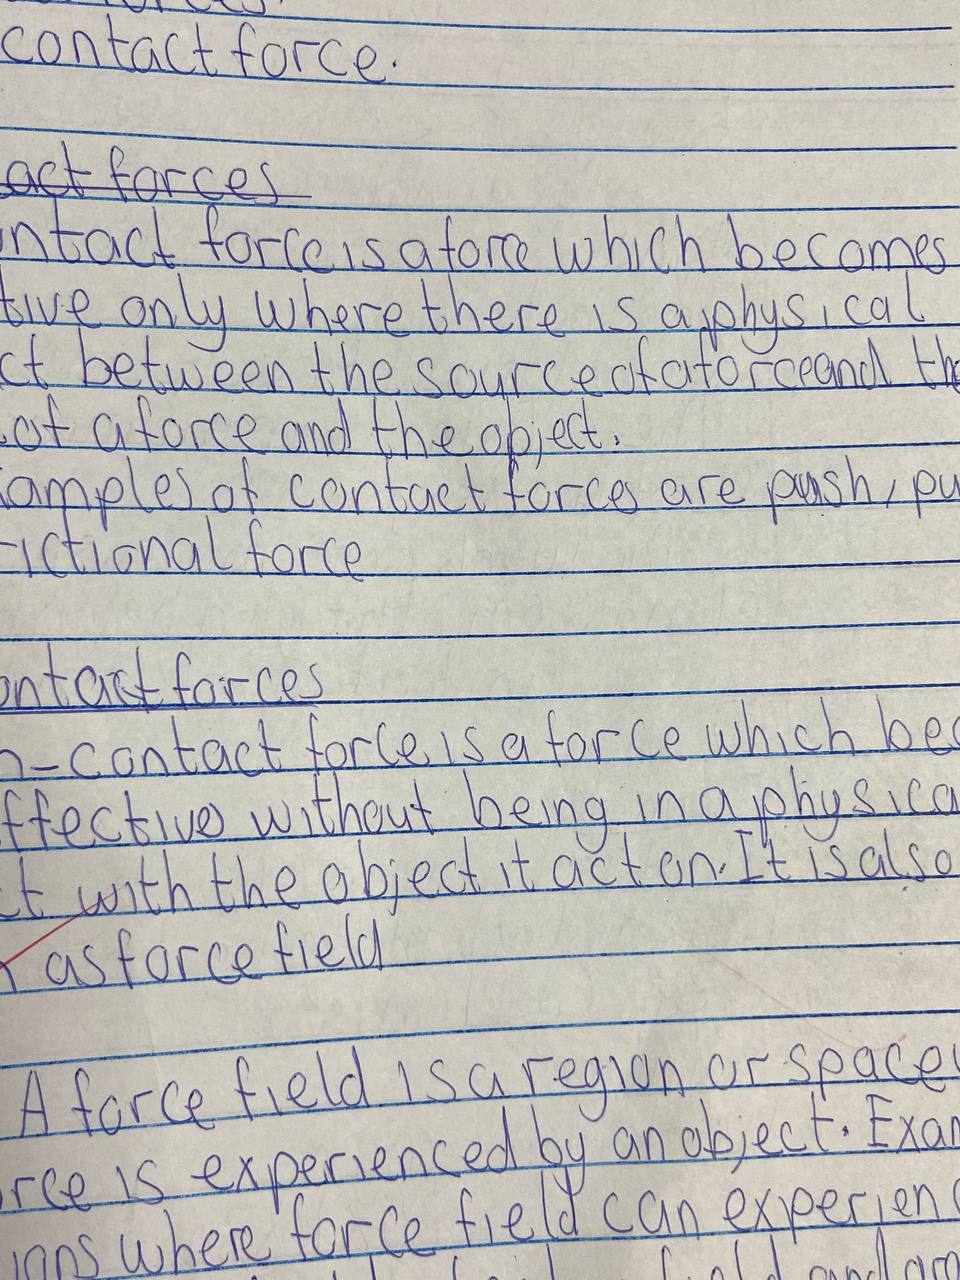 contact force.
act forces
ntact force is a force which becomes
tive only where there is a physical
ct between the source of a force and the
of a force and the object.
amples of contact forces are push, pu
rictional force
ontact forces
n-contact force is a force which bec
ffective without being in a physica
ct with the object it act on. It is also
n as force field
A force field is a region or space
rce is experienced by an object. Exam
ions where force field can experienc